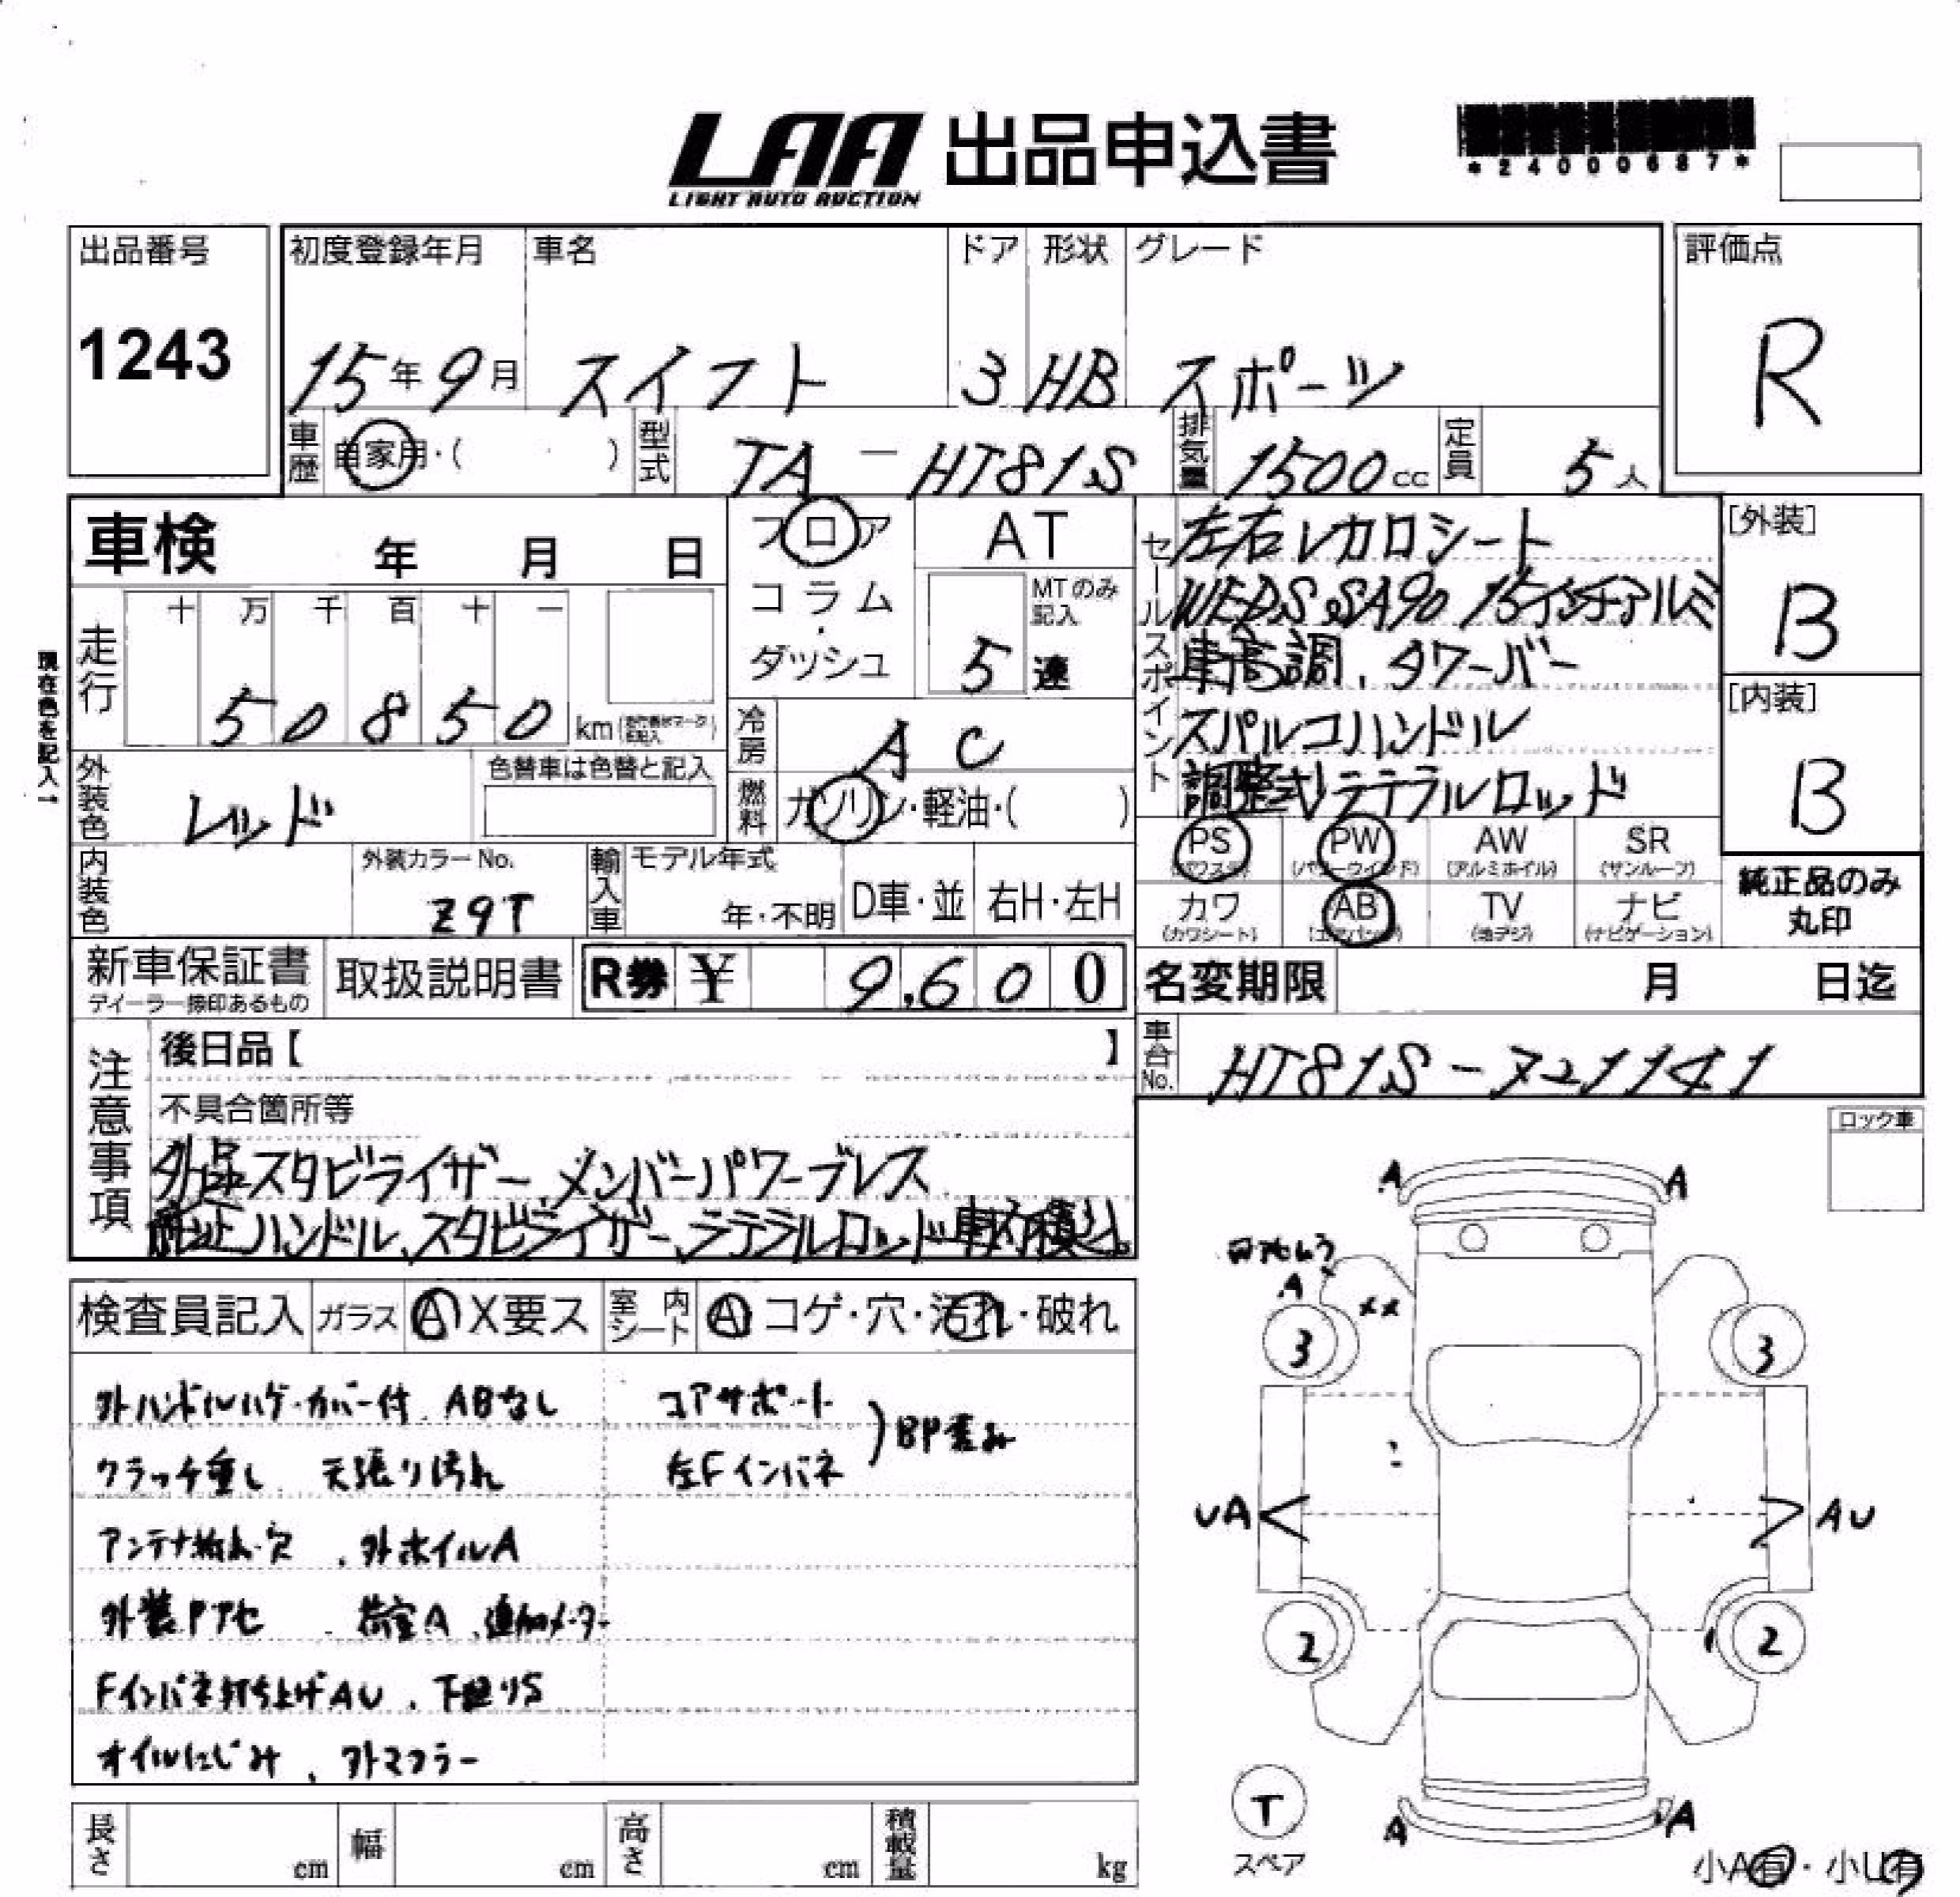 LAA 出品申込書
LIGHT AUTO AUCTION
*24000687*
出品番号 初度登録年月 車名 ドア 形状 グレード 評価点
1243 15年9月 スイフト 3 HB スポーツ R
車歴 自家用・( ) 型式 TA-HT81S 排気量 1500cc 定員 5人
車検 年 月 日
フロア AT
コラム・ MTのみ記入
ダッシュ 5速
セールスポイント
左右レカロシート
WEDS SA90 15インチアルミ
車高調、タワーバー
スパルコハンドル
調整式ラテラルロッド
[外装]
B
[内装]
B
現在色を記入→
走行 十 万 千 百 十 一
50850 km
冷房 AC
外装色 レッド 色替車は色替と記入
燃料 ガソリン・軽油・( )
PS (パワステ) PW (パワーウインド) AW (アルミホイル) SR (サンルーフ)
カワ (カワシート) AB (エアバッグ) TV (地デジ) ナビ (ナビゲーション)
純正品のみ丸印
内装色 外装カラーNo. Z9T 輸入車 モデル年式 年・不明 D車・並 右H・左H
新車保証書 ディーラー捺印あるもの 取扱説明書 R券 ¥ 9,600 名変期限 月 日迄
車台No. HT81S-721141
注意事項
後日品【 】
不具合箇所等
外品スタビライザー、メンバーパワーブレス
純正ハンドル、スタビライザー、ラテラルロッド車内積込。
ロック車
検査員記入 ガラス A X要ス 室内シート A コゲ・穴・汚れ・破れ
外ハンドルハゲ・カバー付、ABなし コアサポート
クラッチ重し、天張り汚れ 左Fインパネ )BP歪み
アンテナ折れ・穴、外ホイルA
外装Pアセ、荷室A、追加メーター
Fインパネ打ち上げAU、下廻りS
オイルにじみ、外マフラー
A A
A
XX
3 3
UA AU
2 2
T
スペア
A A
小A有・小U有
長さ cm 幅 cm 高さ cm 積載量 kg